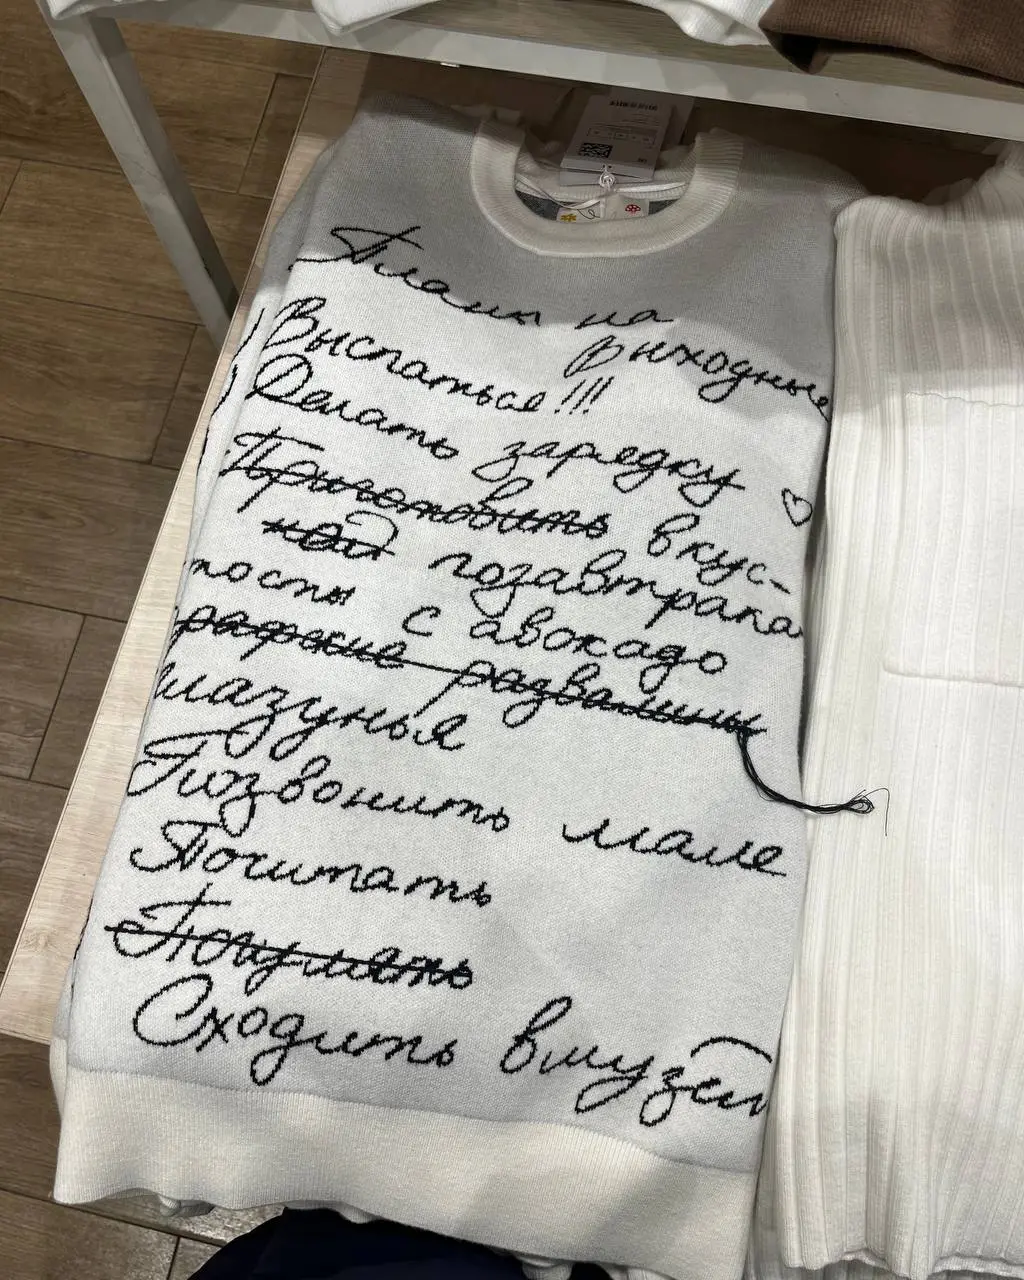 Планы на
выходные
Выспаться!!!
Делать зарядку ♡
Приготовить вкус-
ной позавтрака
тосты с авокадо
рафские развалины
лазунья
Позвонить маме
Почитать
Сходить в музей